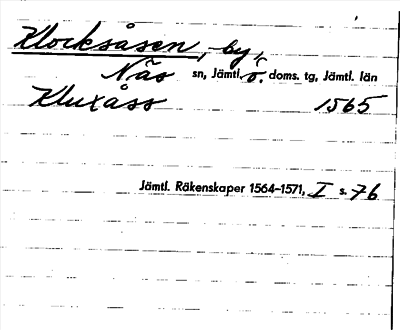 Klocksåsen, by,
Näs sn, Jämtl. ö. doms. tg, Jämtl. län
Kluxåss 1565
Jämtl. Räkenskaper 1564-1571, I s. 76